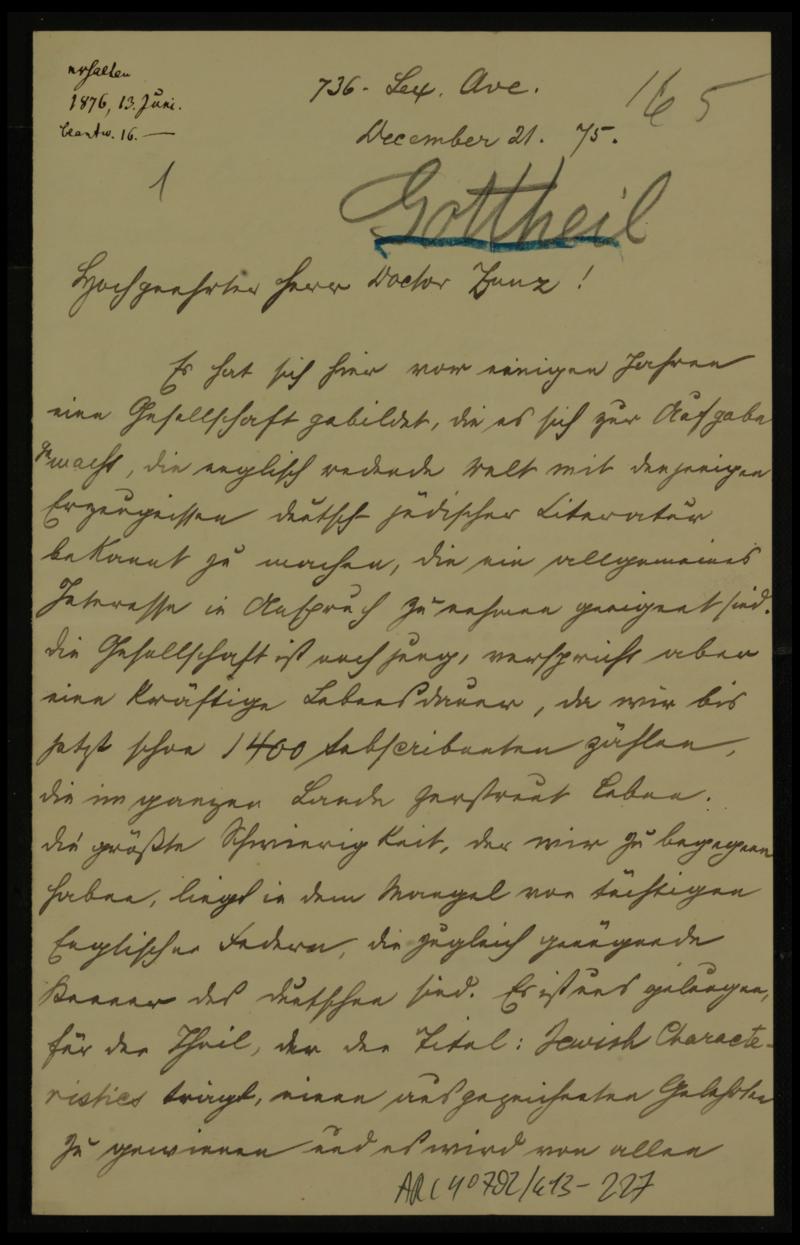 erhalten
1876, 13. Juni.
beantw. 16. —
736. Lex. Ave.
165
December 21. 75.
1
Gottheil
Hochgeehrter Herr Doctor Zunz!
Es hat sich hier vor einigen Jahren
eine Gesellschaft gebildet, die es sich zur Aufgabe
gemacht, die englisch redende Welt mit denjenigen
Erzeugnissen deutsch-jüdischer Literatur
bekannt zu machen, die ein allgemeines
Interesse in Anspruch zu nehmen geeignet sind.
Die Gesellschaft ist noch jung, verspricht aber
eine kräftige Lebensdauer, da wir bis
jetzt schon 1400 Subscribenten zählen,
die im ganzen Lande zerstreut leben.
Die größte Schwierigkeit, der wir zu begegnen
haben, liegt in dem Mangel von tüchtigen
Englischen Federn, die zugleich genügende
Kenner des Deutschen sind. Es ist uns gelungen,
für den Theil, der den Titel: Jewish Characte-
ristics trägt, einen ausgezeichneten Gelehrten
zu gewinnen und es wird von allen
AR C 40792/413-227